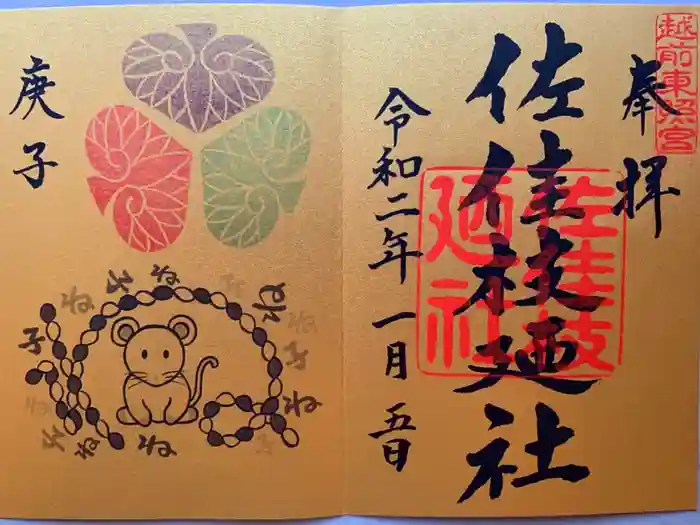 越前東照宮
奉拝
佐佳枝廼社
佐佳枝
廼社
令和二年一月五日
庚子
ね
子
ね
子
ね
ね
子
ね
子
ね
ね